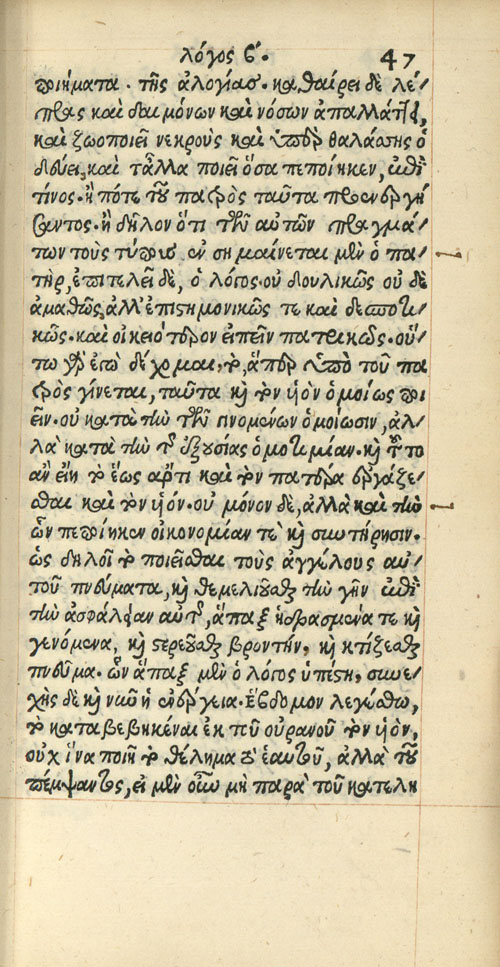 λόγος ϛ´. 47
ποιήματα. τῆς ἀλογίας. καθαίρει δὲ λέ/
πρας καὶ δαιμόνων καὶ νόσων ἀπαλλάττει,
καὶ ζωοποιεῖ νεκροὺς καὶ ὑπὲρ θαλάσσης ὁ
δεύει, καὶ τἄλλα ποιεῖ ὅσα πεποίηκεν, ἐπὶ
τίνος. ἢ πότε τοῦ πατρὸς ταῦτα προενεργή
σαντος. ἢ δῆλον ὅτι τῶν αὐτῶν πραγμά/
των τοὺς τύπους ἐν σημαίνεται μὲν ὁ πα/
τὴρ, ἐπιτελεῖ δὲ, ὁ λόγος. οὐ δουλικῶς οὐ δὲ
ἀμαθῶς, ἀλλ' ἐπιστημονικῶς τε καὶ δεσποτι/
κῶς. καὶ οἰκειότερον εἰπεῖν πατρικῶς. οὕ/
τω γὰρ ἐγὼ δέχομαι, τὸ, ἅπερ ὑπὸ τοῦ πα
τρὸς γίνεται, ταῦτα καὶ τὸν υἱὸν ὁμοίως ποι
εῖν. οὐ κατὰ τὴν τῶν γινομένων ὁμοίωσιν, ἀλ/
λὰ κατὰ τὴν τῆς ἐξουσίας ὁμοτιμίαν. καὶ τοῦτο
ἂν εἴη τὸ ἕως ἄρτι καὶ τὸν πατέρα ἐργάζε/
σθαι καὶ τὸν υἱόν. οὐ μόνον δὲ, ἀλλὰ καὶ τὴν
ὧν πεποίηκεν οἰκονομίαν τὲ καὶ συντήρησιν.
ὡς δηλοῖ τὸ ποιεῖσθαι τοὺς ἀγγέλους αὐ/
τοῦ πνεύματα, καὶ θεμελιοῦσθαι τὴν γῆν ἐπὶ
τὴν ἀσφάλειαν αὐτῆς, ἅπαξ ἡδρασμένα τε καὶ
γενόμενα, καὶ στερεοῦσθαι βροντὴν, καὶ κτίζεσθαι
πνεῦμα. ὧν ἅπαξ μὲν ὁ λόγος ὑπέστη, συνε/
χὴς δὲ καὶ νῦν ἡ ἐνέργεια. Ἕβδομον λεγέσθω,
τὸ καταβεβηκέναι ἐκ τοῦ οὐρανοῦ τὸν υἱὸν,
οὐχ ἵνα ποιῇ τὸ θέλημα τὸ ἑαυτοῦ, ἀλλὰ τοῦ
πέμψαντος, εἰ μὲν οὖν μὴ παρὰ τοῦ κατελη